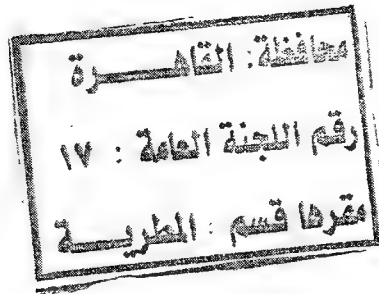 محافظة: القاهـــــرة
رقم اللجنة العامة : ١٧
مقرها قسم : المطريـــة